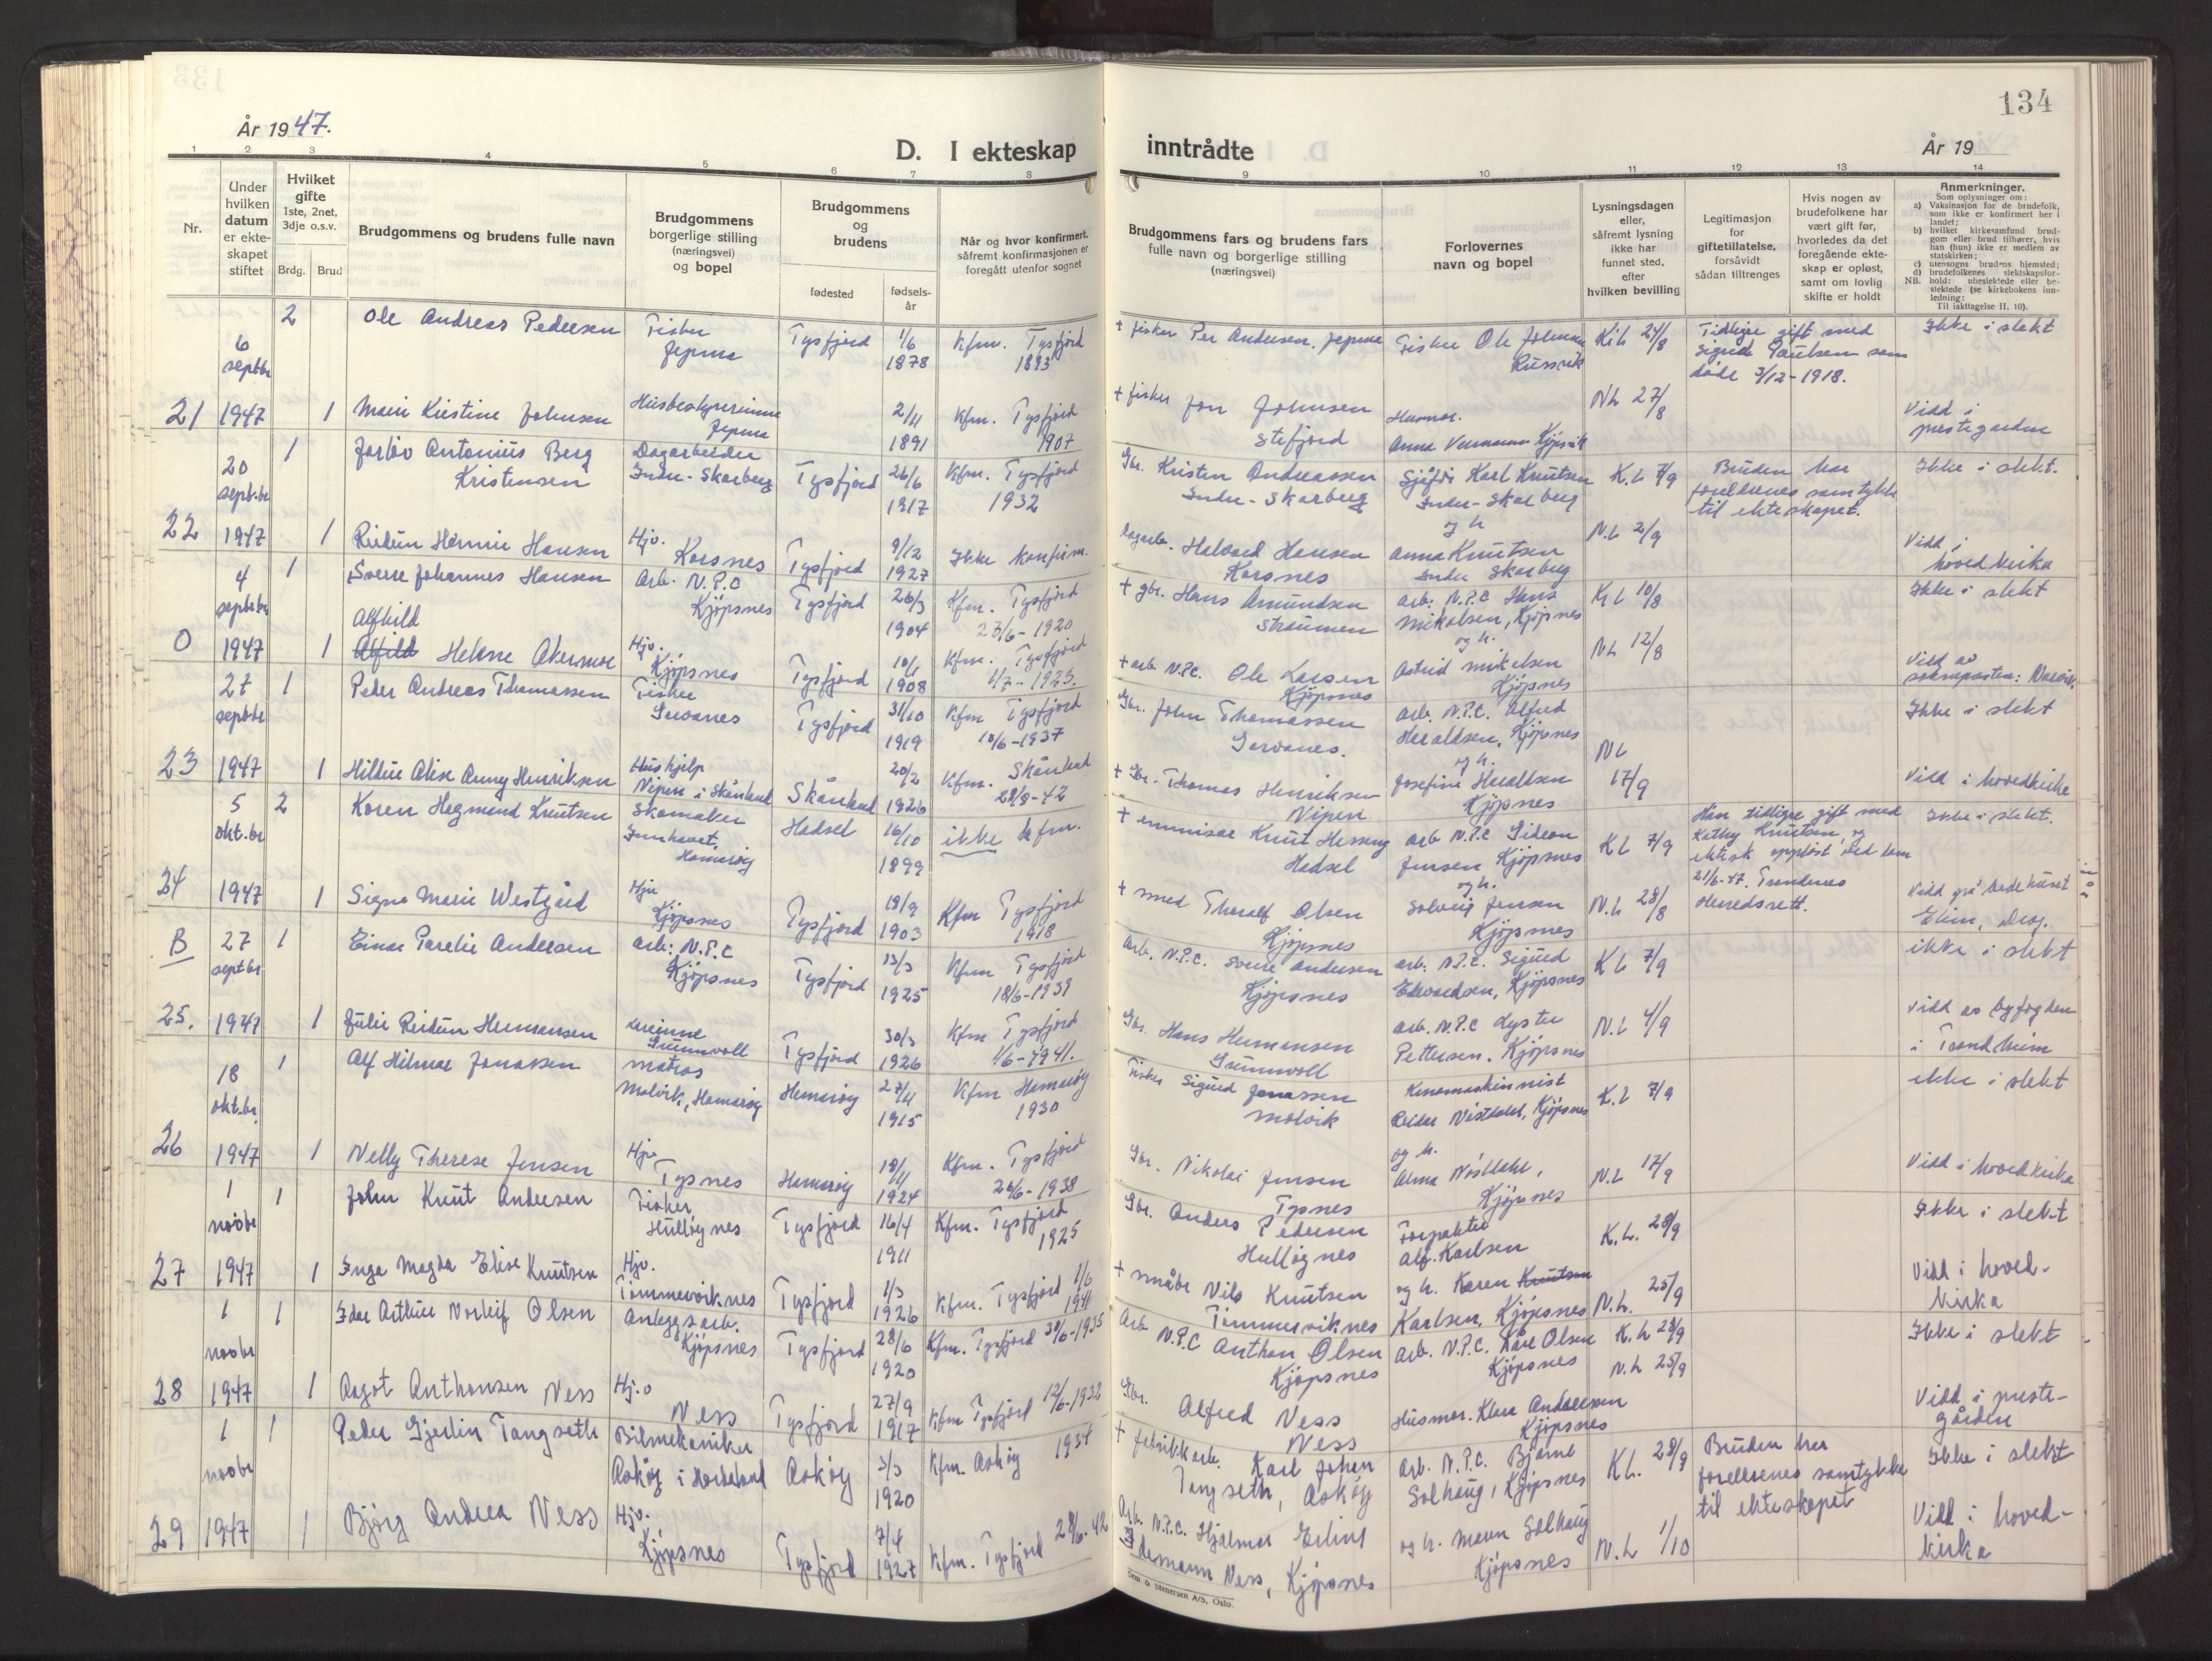 134
År 1947.
D. I ekteskap inntrådte
År 19
1 2 3 4 5 6 7 8 9 10 11 12 13 14
Nr.
Under hvilken datum er ekteskapet stiftet
Hvilket gifte
1ste, 2net, 3dje o.s.v.
Brdg. Brud
Brudgommens og brudens fulle navn
Brudgommens borgerlige stilling (næringsvei) og bopel
Brudgommens og brudens
fødested
fødselsår
Når og hvor konfirmert. såfremt konfirmasjonen er foregått utenfor sognet
Brudgommens fars og brudens fars fulle navn og borgerlige stilling (næringsvei)
Forlovernes navn og bopel
Lysningsdagen eller, såfremt lysning ikke har funnet sted, efter hvilken bevilling
Legitimasjon for giftetillatelse, forsåvidt sådan tiltrenges
Hvis nogen av brudefolkene har vært gift før, hvorledes da det foregående ekteskap er opløst, samt om lovlig skifte er holdt
Anmerkninger.
Som oplysninger om:
a) Vaksinasjon for de brudefolk, som ikke er konfirmert her i landet;
b) hvilket kirkesamfund brudgom eller brud tilhører, hvis han (hun) ikke er medlem av statskirken;
c) utensogns brudens hjemsted;
d) brudefolkenes slektskapsforhold: ubeslektede eller beslektede (se kirkebokens innledning:
NB. Til iakttagelse II, 10).
6 septbr 2 Ole Andreas Pedersen Fisker Jepma Tysfjord 1/6 1878 Kfm. Tysfjord 1893 + fisker Per Andersen. Jepma Fisker Ole Johnsen Russvik K.L 24/8 Tidligere gift med Sigrid Paulsen som døde 3/12-1918. Ikke i slekt
21 1947 1 Marie Kirstine Johnsen Husbestyrerinne Jepma 2/11 1891 Kfm. Tysfjord 1907 + fisker Jon Johnsen Stefjord Husmor. Anna Kjøpsvik NL 27/8 Viid i prestegarden
20 septbr 1 Jorleiv Antonius Berg Kristensen Dagarbeider Indre-Skarberg Tysfjord 26/6 1917 Kfm. Tysfjord 1932 Gbr. Kristen Andreassen Indre-Skarberg Sjåfør Karl Knutsen Indre-Skarberg og h K.L 7/9 Bruden har foreldrenes samtykke til ekteskapet. Ikke i slekt.
22 1947 1 Reidun Hansen Hjv. Korsnes Tysfjord 9/12 1927 Ikke konfirm. Dagarb. Halvard Hansen Korsnes Anna Knutsen Indre Skarberg N.L 2/9 Viid i hovedkirka
4 septbr 1 Sverre Johannes Hansen Arb. N.P.C Kjøpsnes Tysfjord 26/3 1904 Kfm. Tysfjord 23/6-1920 + gbr. Hans Amundsen Straumen Arb. N.P.C Hans Mikalsen, Kjøpsnes og h. K L 10/8 Ikke i slekt
0 1947 1 Alfhild Alfild Helene Akermoe Hjv. Kjøpsnes Tysfjord 10/1 1908 Kfm. Tysfjord 1/7-1923. + arb. N.P.C. Ole Larsen Kjøpsnes Astrid Mikelsen Kjøpsnes NL 12/8 Viid av sokneprsten: Narvik.
27 septbr 1 Peder Andreas Thomassen Fisker Tysfjord 31/10 1919 Kfm Tysfjord 10/6-1937 Gbr. John Thomassen Arb. N.P.C. Alfred Haraldsen, Kjøpsnes og h. Ikke i slekt
23 1947 1 Hildur Alise Anny Henriksen Hushjelp Nipen i Skånland Skånland 20/2 1926 Kfm. Skånland 28/8-42 + Gbr. Thomas Henriksen Nipen Josefine Haraldsen Kjøpsnes NL 17/9 Viid i hovedkirke
5 okt.br 2 Karen Hegmund Knutsen Skomaker Innhavet, Hamarøy Hadsel 16/10 1899 ikke kfm. + emmisær Knut Hadsel Arb N.P.C Gideon Jensen Kjøpsnes og h. K L 7/9 Han tidligere gift med Kathy Knutsen, og ektesk. oppløst ved dom 21/6-47. Trondenes Herredsrett. Ikke i slekt.
24 1947 1 Signe Marie Westgård Hjv Kjøpsnes Tysfjord 18/9 1903 Kfm Tysfjord 1918 + smed Thoralf Olsen Kjøpsnes Solveig Jensen Kjøpsnes N.L 28/8 Viid på bedehuset Elim, Drag.
B 27 septbr 1 Einar Parelie Andersen Arb. N.P.C Kjøpsnes Tysfjord 13/3 1925 Kfm Tysfjord 18/6-1939 Arb. N.P.C. Sverre Andersen Kjøpsnes Arb. N.P.C. Sigurd Edvardsen, Kjøpsnes K L 7/9 ikke i slekt
25. 1947 1 Julie Reidun Hermansen Lærerinne Grunnvoll Tysfjord 30/3 1926 Kfm Tysfjord 1/6-1941. Gbr. Hans Hermansen Grunnvoll Arb. N.P.C Pettersen, Kjøpsnes N.L 4/9 Viid av byfogden i Trondheim
18 okt.br 1 Alf Hilmar Jonassen Matros Malvik, Hamarøy Hamarøy 27/11 1915 Kfm Hamarøy 1930 Fisker Sigurd Jonassen Malvik Kinomaskinist Reidar Nøstdahl, Kjøpsnes K.L 7/9 ikke i slekt
26 1947 1 Nelly Therese Jensen Hjv Tysnes Hamarøy 18/11 1924 Kfm. Tysfjord 26/6-1938 Gbr. Nikolai Jensen Tysnes og h. Alma Nøstdahl, Kjøpsnes N.L 17/9 Viid i hovedkirka
1 novbr 1 John Knut Andersen Fisker Hulløynes Tysfjord 16/4 1911 Kfm. Tysfjord 1925 Gbr. Anders Pedersen Hulløynes Forpakter Alf. Karlsen K.L. 28/9 Ikke i slekt
27 1947 1 Inga Magda Elise Knutsen Hjv. Tømmervik­nes Tysfjord 1/3 1926 Kfm. Tysfjord 1/6 1941 + småbr Nils Knutsen Tømmerviknes og h. Karen Knutsen Karlsen, Kjøpsnes N.L. 25/9 Viid i hovedkirka
1 novbr 1 Idar Arthur Norleif Olsen Anleggsarb. Kjøpsnes Tysfjord 28/6 1920 Kfm. Tysfjord 30/6-1935 Arb N.P.C Anthon Olsen Kjøpsnes Arb. N.P.C. Kåre Olsen Kjøpsnes K.L 28/9 N.L 25/9 Ikke i slekt
28 1947 1 Aagot Anthonsen Ness Hj.v Ness Tysfjord 27/9 1917 Kfm Tysfjord 12/6-1932 Gbr. Alfred Ness Ness Husmor. Klara Andreassen Kjøpsnes Viid i prestegården
1 novbr 1 Peder Gjerlin Tangseth Bilmekaniker Askøy i Hordaland Askøy 3/3 1920 Kfm. Askøy 1934 + fabrikkarb. Karl Johan Tangseth, Askøy Arb. N.P.C. Bjarne Solhaug, Kjøpsnes K L. 28/9 Bruden har foreldrenes samtykke til ekteskapet Ikke i slekt
29 1947 1 Bjørg Andrea Ness Hjv. Kjøpsnes Tysfjord 7/4 1927 Kfm. Tysfjord 28/6-42 Arb. N.P.C. Hjalmar Erling Edemann Ness, Kjøpsnes og h. Solhaug Kjøpsnes N.L 1/10 Viid i hovedkirka
Sem & Stenersen A/S, Oslo.